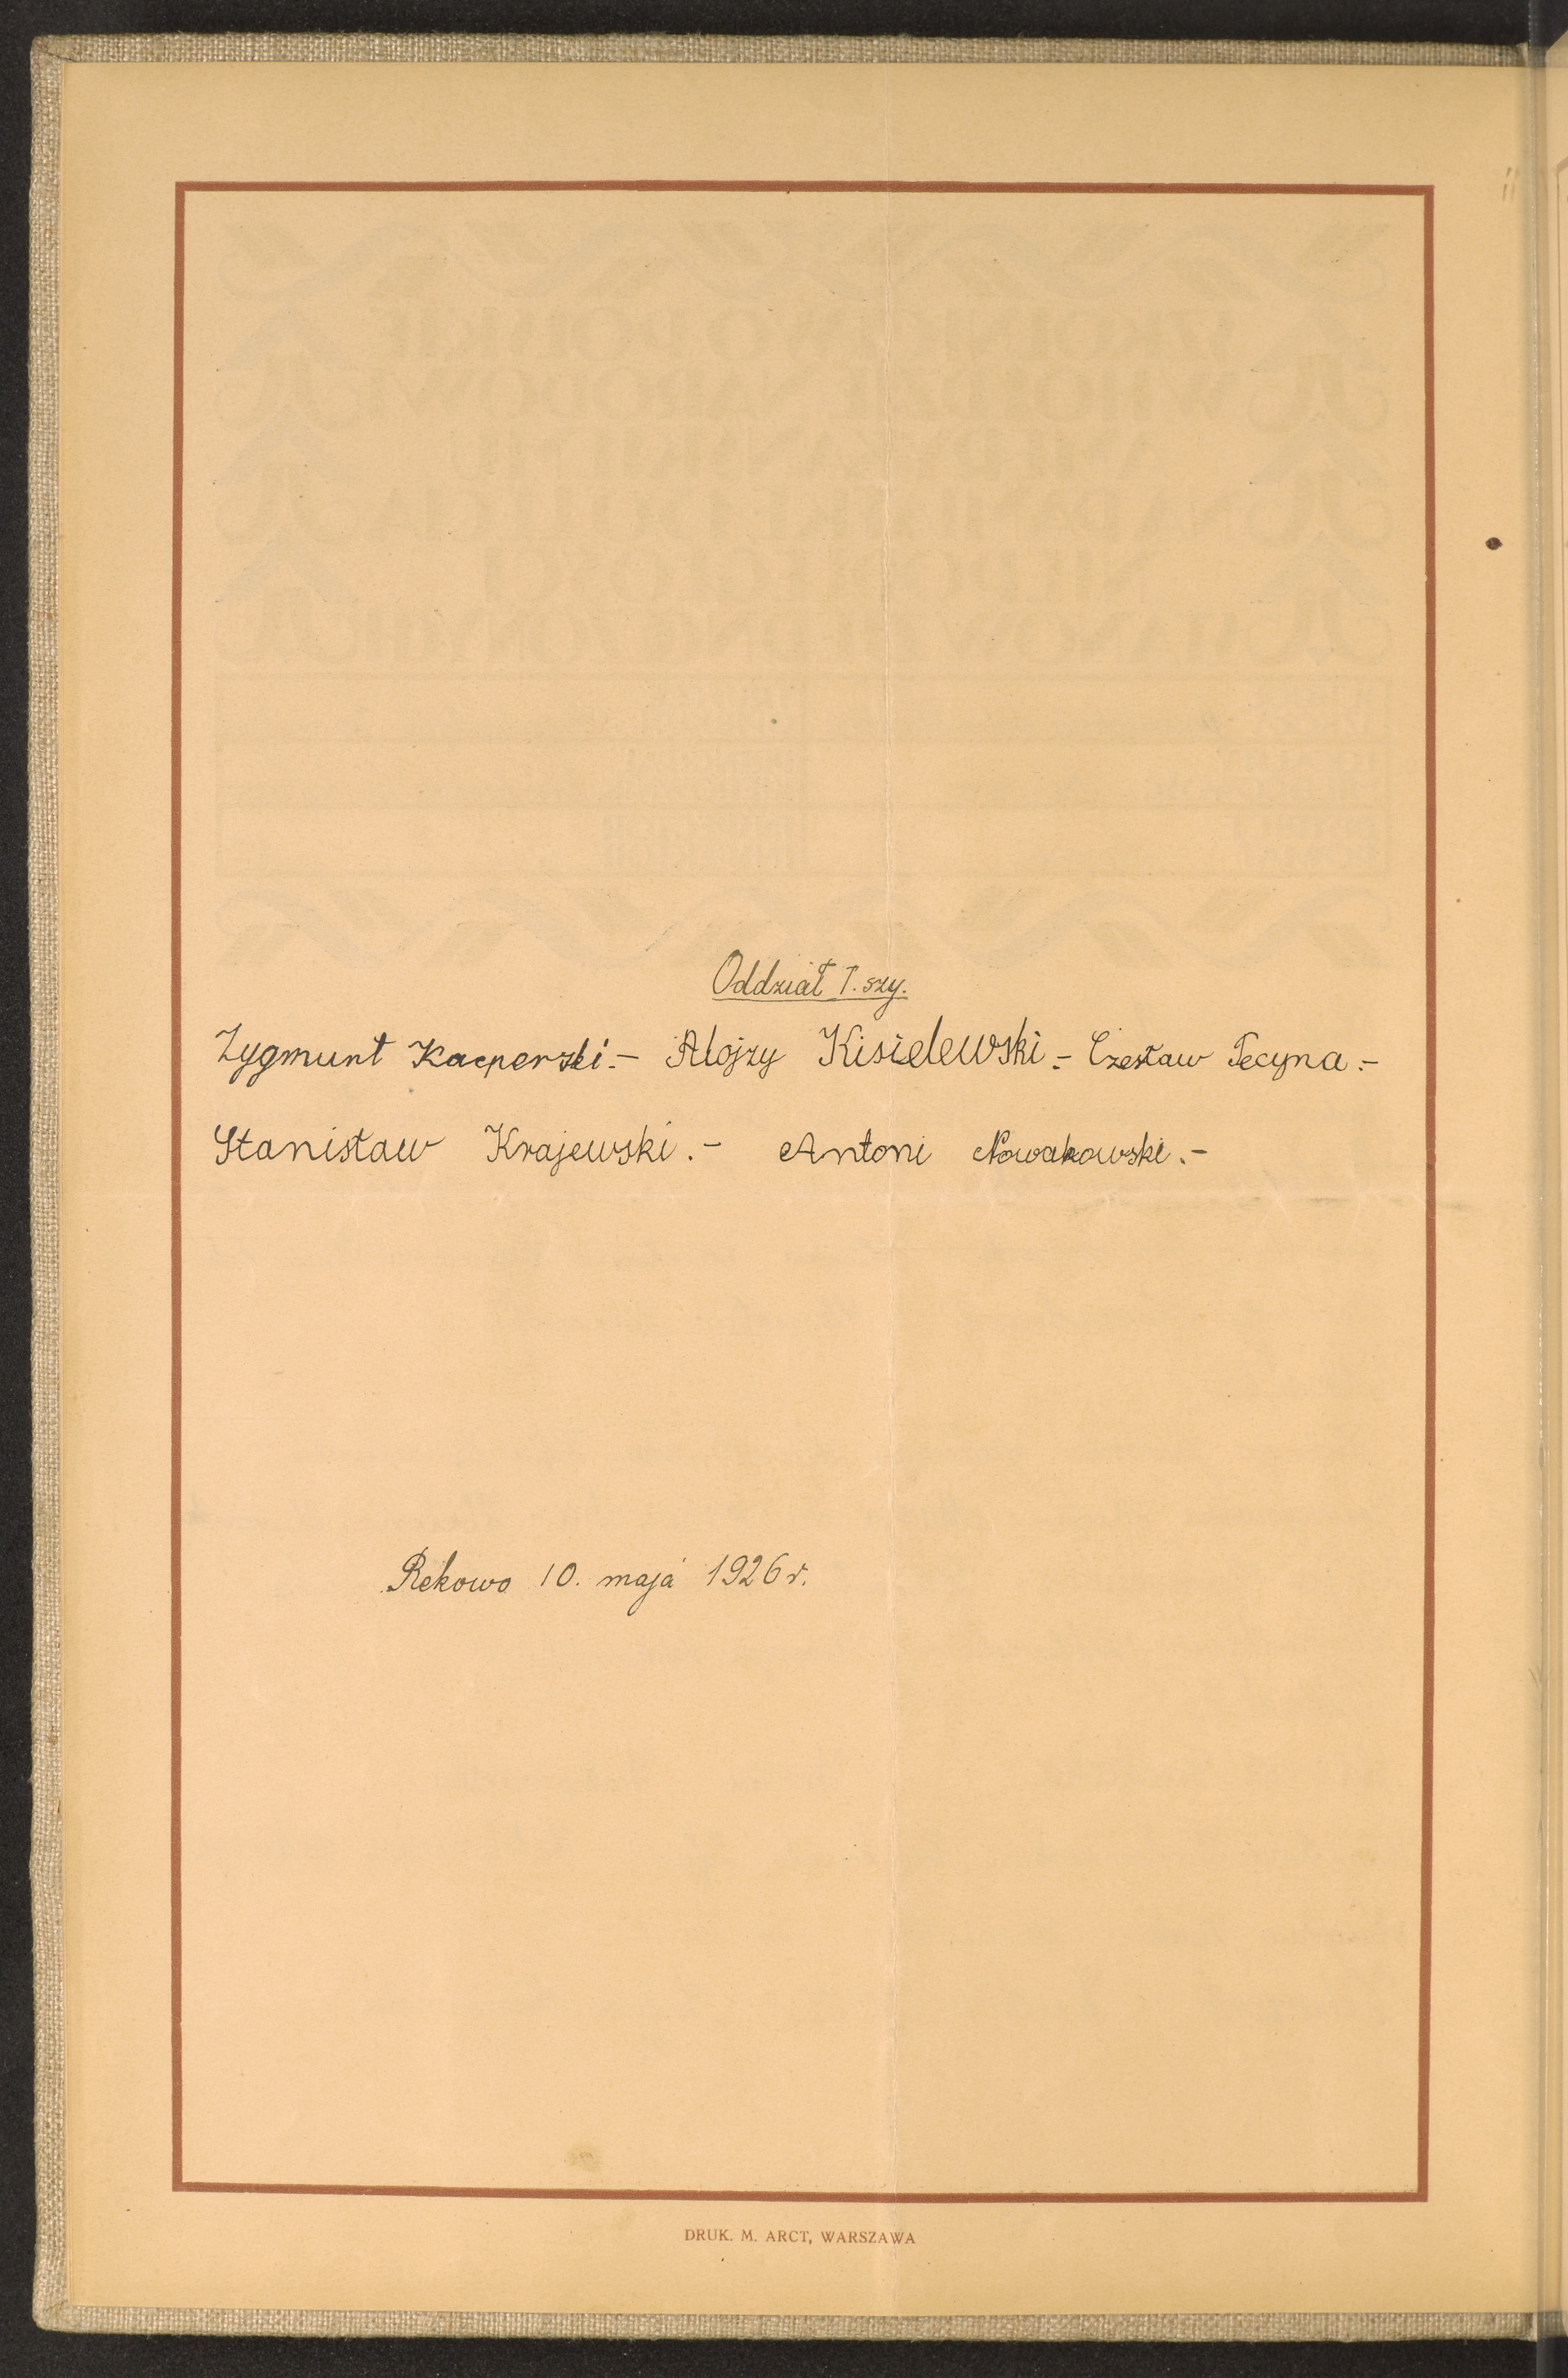 Oddział I. szy.
Zygmunt Kacperski.- Alojzy Kisielewski.- Czesław Pecyna.-
Stanisław Krajewski.- Antoni Nowakowski.-
Rekowo 10. maja 1926 r.
DRUK. M. ARCT, WARSZAWA